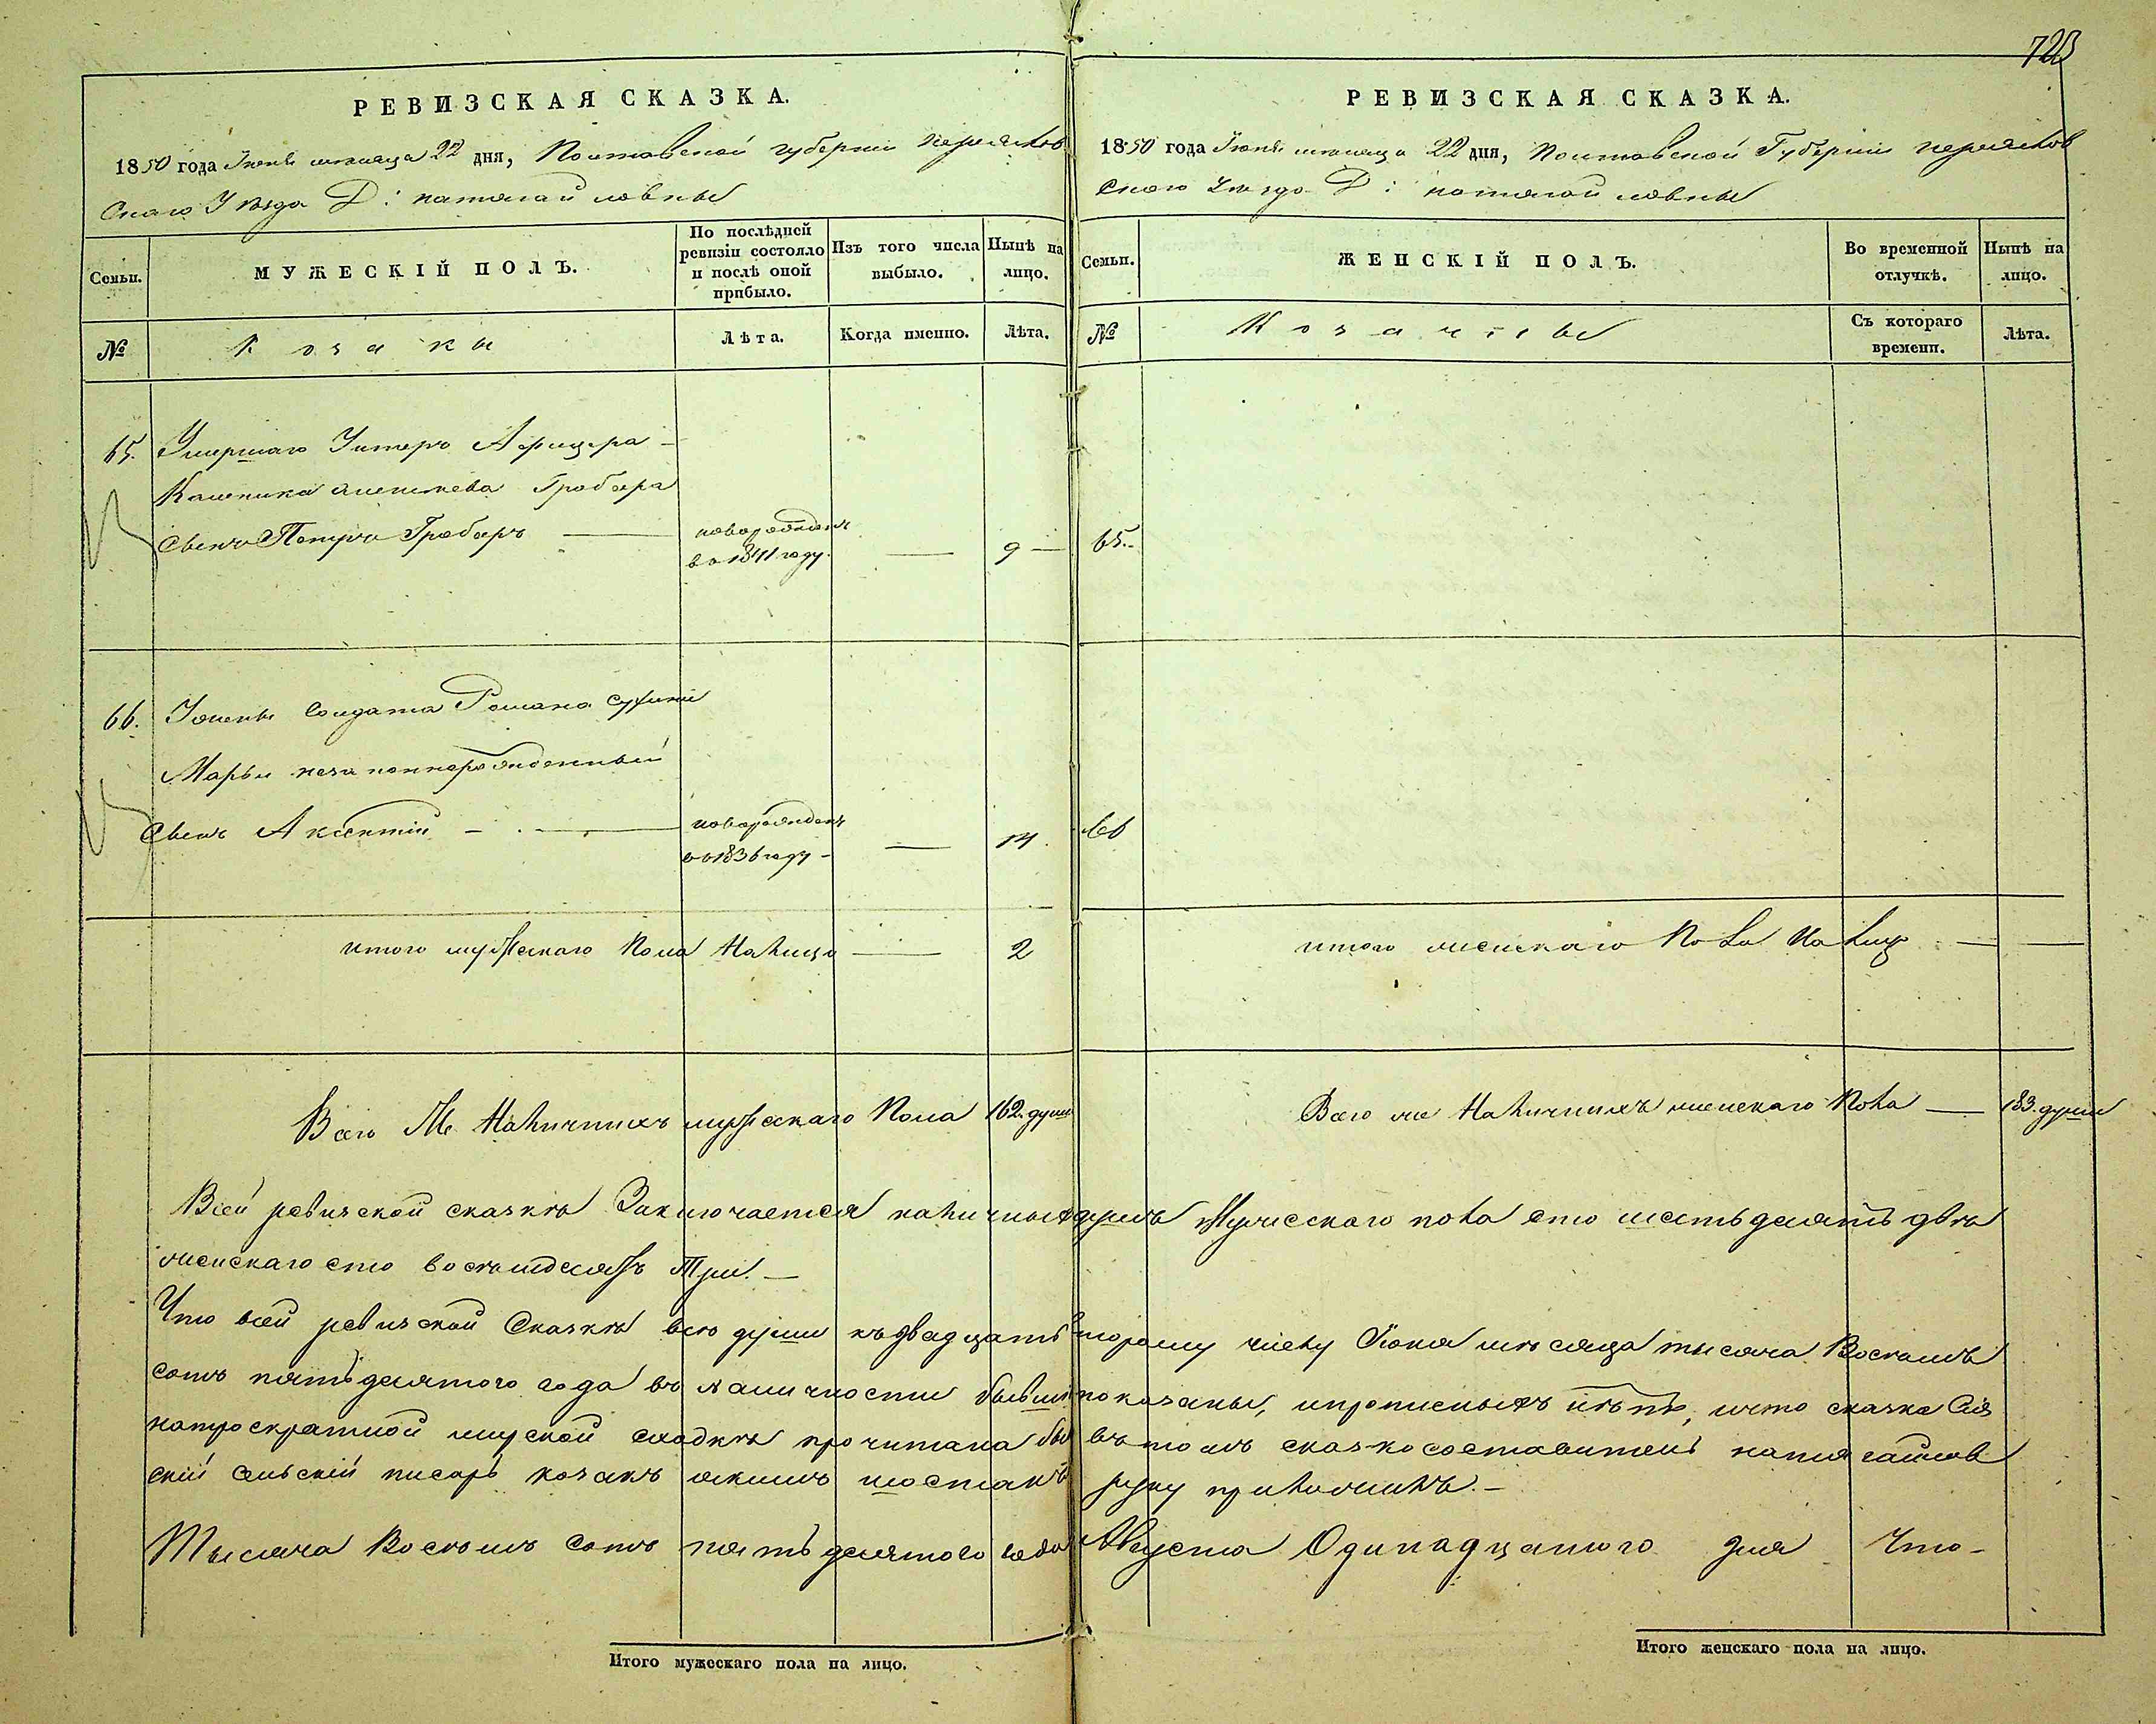 723
РЕВИЗСКАЯ СКАЗКА.
1850 года Июня мѣсяца 22 дня, Полтавской губерніи Переяслов
скаго Уѣзда Д:
Семьи.
МУЖЕСКІЙ ПОЛЪ.
По послѣдней ревизіи состояло и послѣ оной прибыло.
Изъ того числа выбыло.
Нынѣ на лицо.
№
Козаки
Лѣта.
Когда именно.
Лѣта.
65. Умершаго Унтеръ Афицера
Грабара
Сынъ Петръ Грабаръ — новорожденъ
во 1841 году. — 9 —
66. Жоны Солдата Романа
Марьи незаконнорожденный
Сынъ Аксентій — новорожденъ
во 1836 году — — 14.
итого мужескаго пола налицо — 2
Всего же наличныхъ мужескаго пола 162. души
РЕВИЗСКАЯ СКАЗКА.
1850 года Июня мѣсяца 22 дня, Полтавской Губерніи Переяслов
скаго Уѣзда Д:
Семьи.
ЖЕНСКІЙ ПОЛЪ.
Во временной отлучкѣ.
Нынѣ на лицо.
№
Козачки
Съ котораго времени.
Лѣта.
65.
66
итого женскаго пола на лицо — —
Всего же наличныхъ женскаго пола — 183. души
Всей ревизской сказкѣ Заключается наличныхъ душъ Мужескаго пола сто шестьдесятъ двѣ
женскаго сто восемдесятъ три. —
Что всей ревизской Сказкѣ всѣ души къ двадцать второму числу Июня мѣсяца тысяча Восемь
сотъ пятьдесятого года въ наличности бывши показаны, и прописныхъ нѣтъ, и что сказка Сія
на мирской сходкѣ прочитана
скій сельскій писарь козакъ Якимъ Шостакъ руку приложилъ. —
Тысяча Восемь сотъ пятьдесятого года Августа Одинадцатого дня Что —
Итого мужескаго пола на лицо.
Итого женскаго пола на лицо.